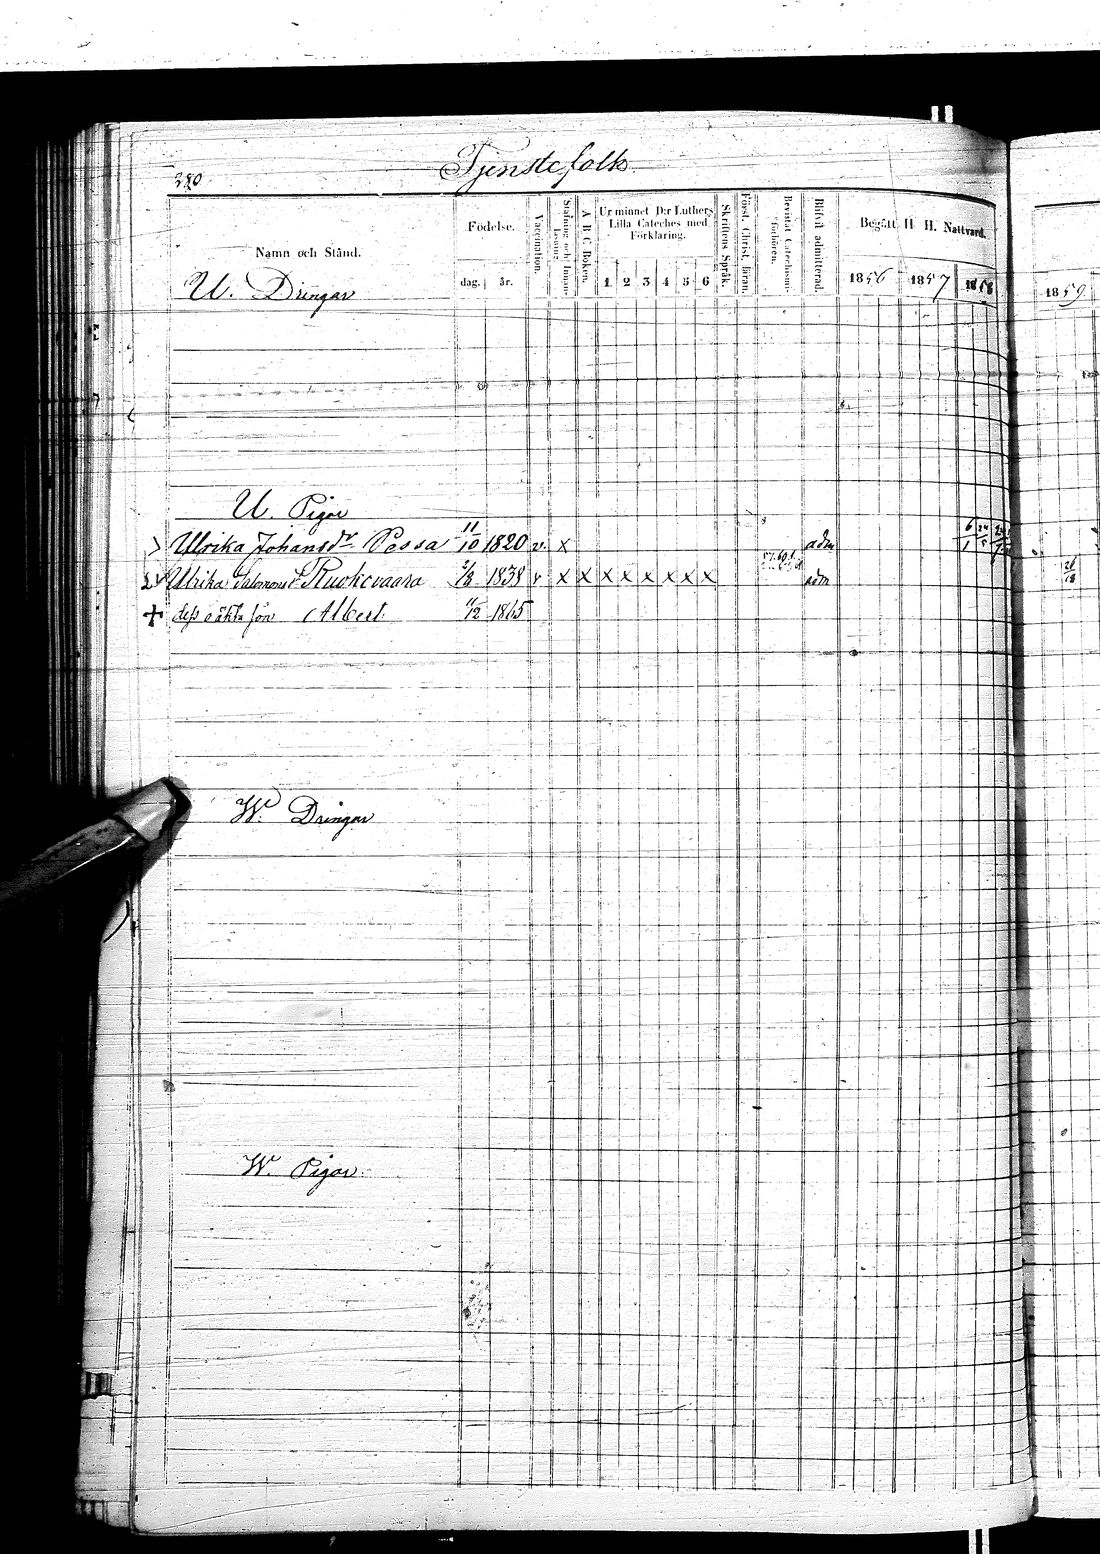 280
Tjenstefolk
Namn och Stånd.
Födelse.
dag. år.
Vaccination.
Stafning och Innanläsning
A B C Boken.
Ur minnet D:r Luthers Lilla Cateches med Förklaring.
1 2 3 4 5 6
Skriftens Språk.
Först. Christ. läran
Bevistat Catechismiförhören.
Blifvit admitterad.
Begått H H. Nattvard.
1856 1857 1858
1859
U. Drängar
U. Pigor
Ulrika Johansdr Pessa 11/10 1820 v. x adm 6/1
Ulrika Salomonsdr Ruokovaara 2/8 1838 v x x x x x x x x adm
dess oäkta son Albert 11/12 1865
W. Drängar
W. Pigor